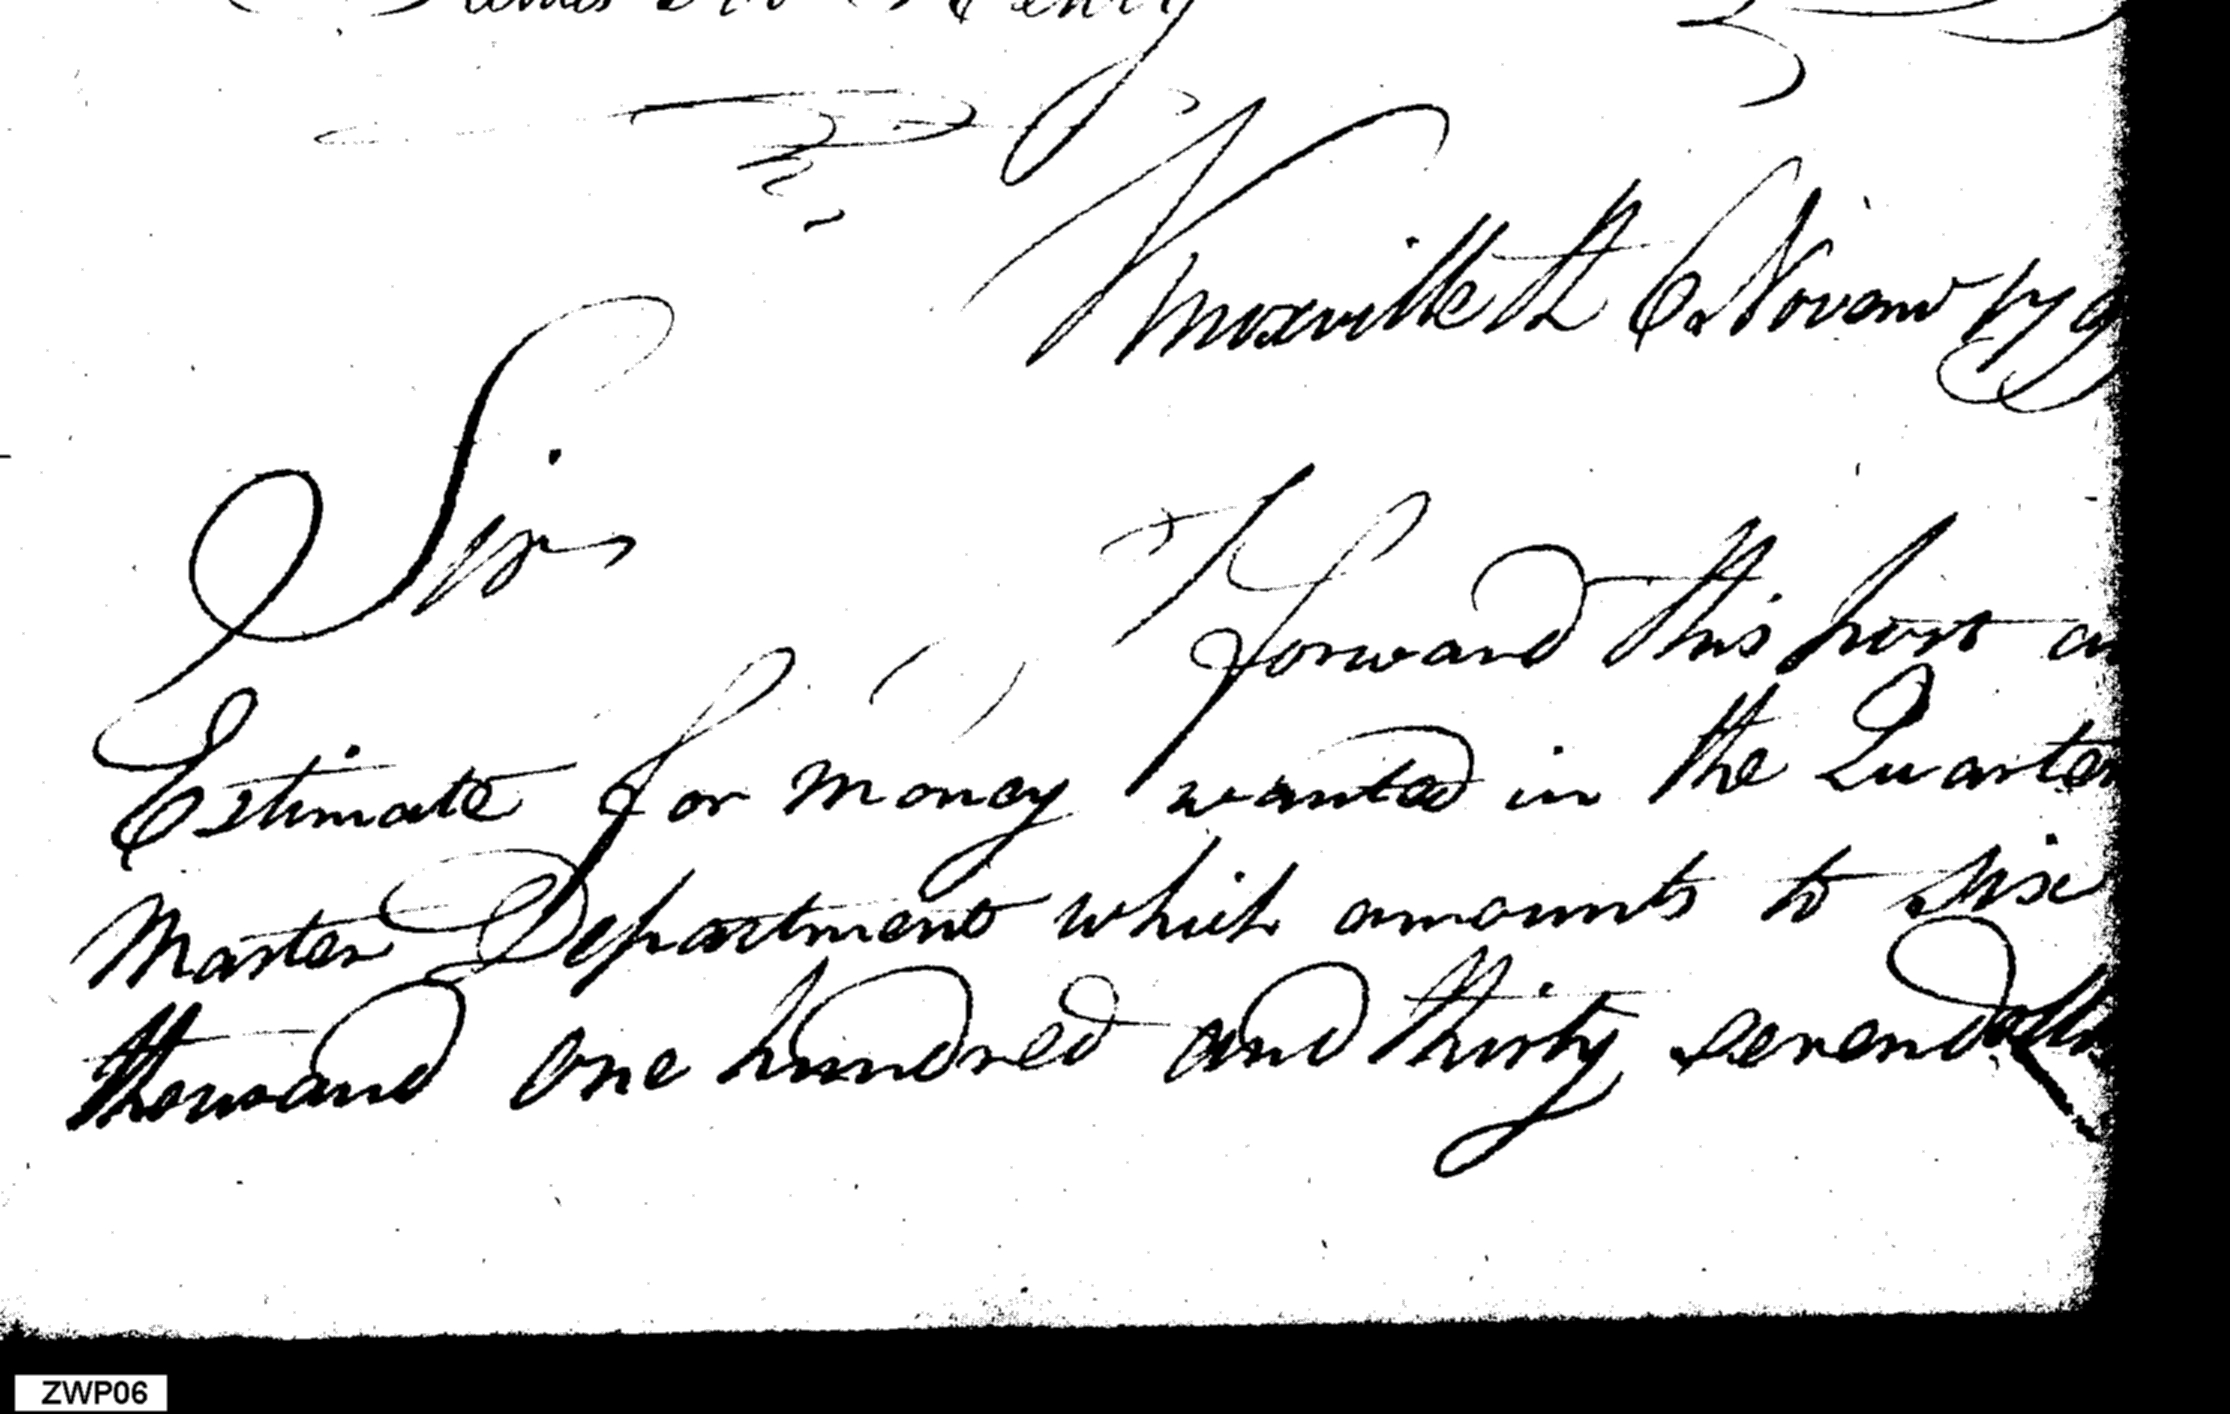 Henry
Knoxville th 6 Novem 179
Sir
I forward this post an
Estimate for money wanted in the Quarter
Master Department which amounts to six
thousand one hundred and thirty seven dolls
ZWP06